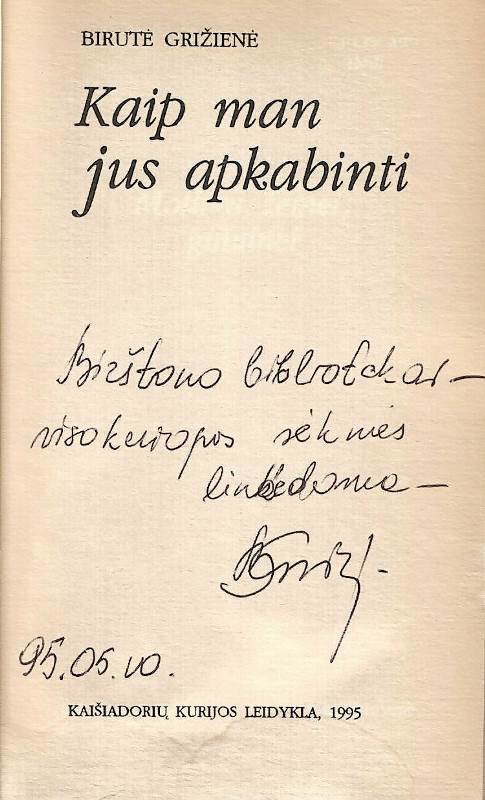 BIRUTĖ GRIŽIENĖ
Kaip man
jus apkabinti
Birštono bibliotekai —
visokeriopos sėkmės
linkėdama —
95.05.10.
KAIŠIADORIŲ KURIJOS LEIDYKLA, 1995